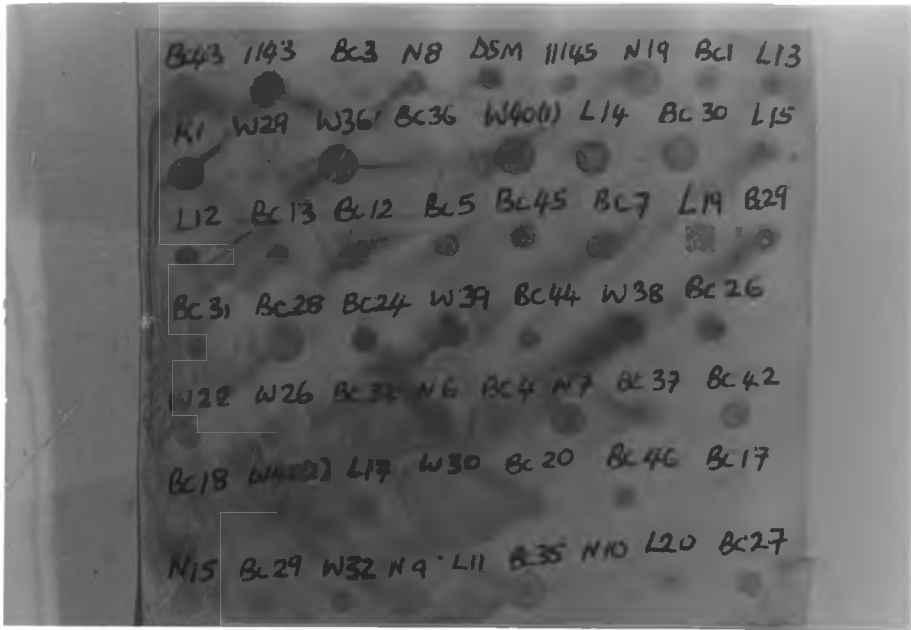 Bc43 1143 Bc3 N8 DSM 11145 N19 Bc1 L13
K1 W29 W36 Bc36 W40(1) L14 Bc30 L15
L12 Bc13 Bc12 Bc5 Bc45 Bc7 L19 B29
Bc31 Bc28 Bc24 W39 Bc44 W38 Bc26
W22 W26 Bc32 N6 Bc4 N7 Bc37 Bc42
Bc18 L17 W30 Bc20 Bc46 Bc17
N15 Bc29 W32 N9 L11 Bc35 N10 L20 Bc27